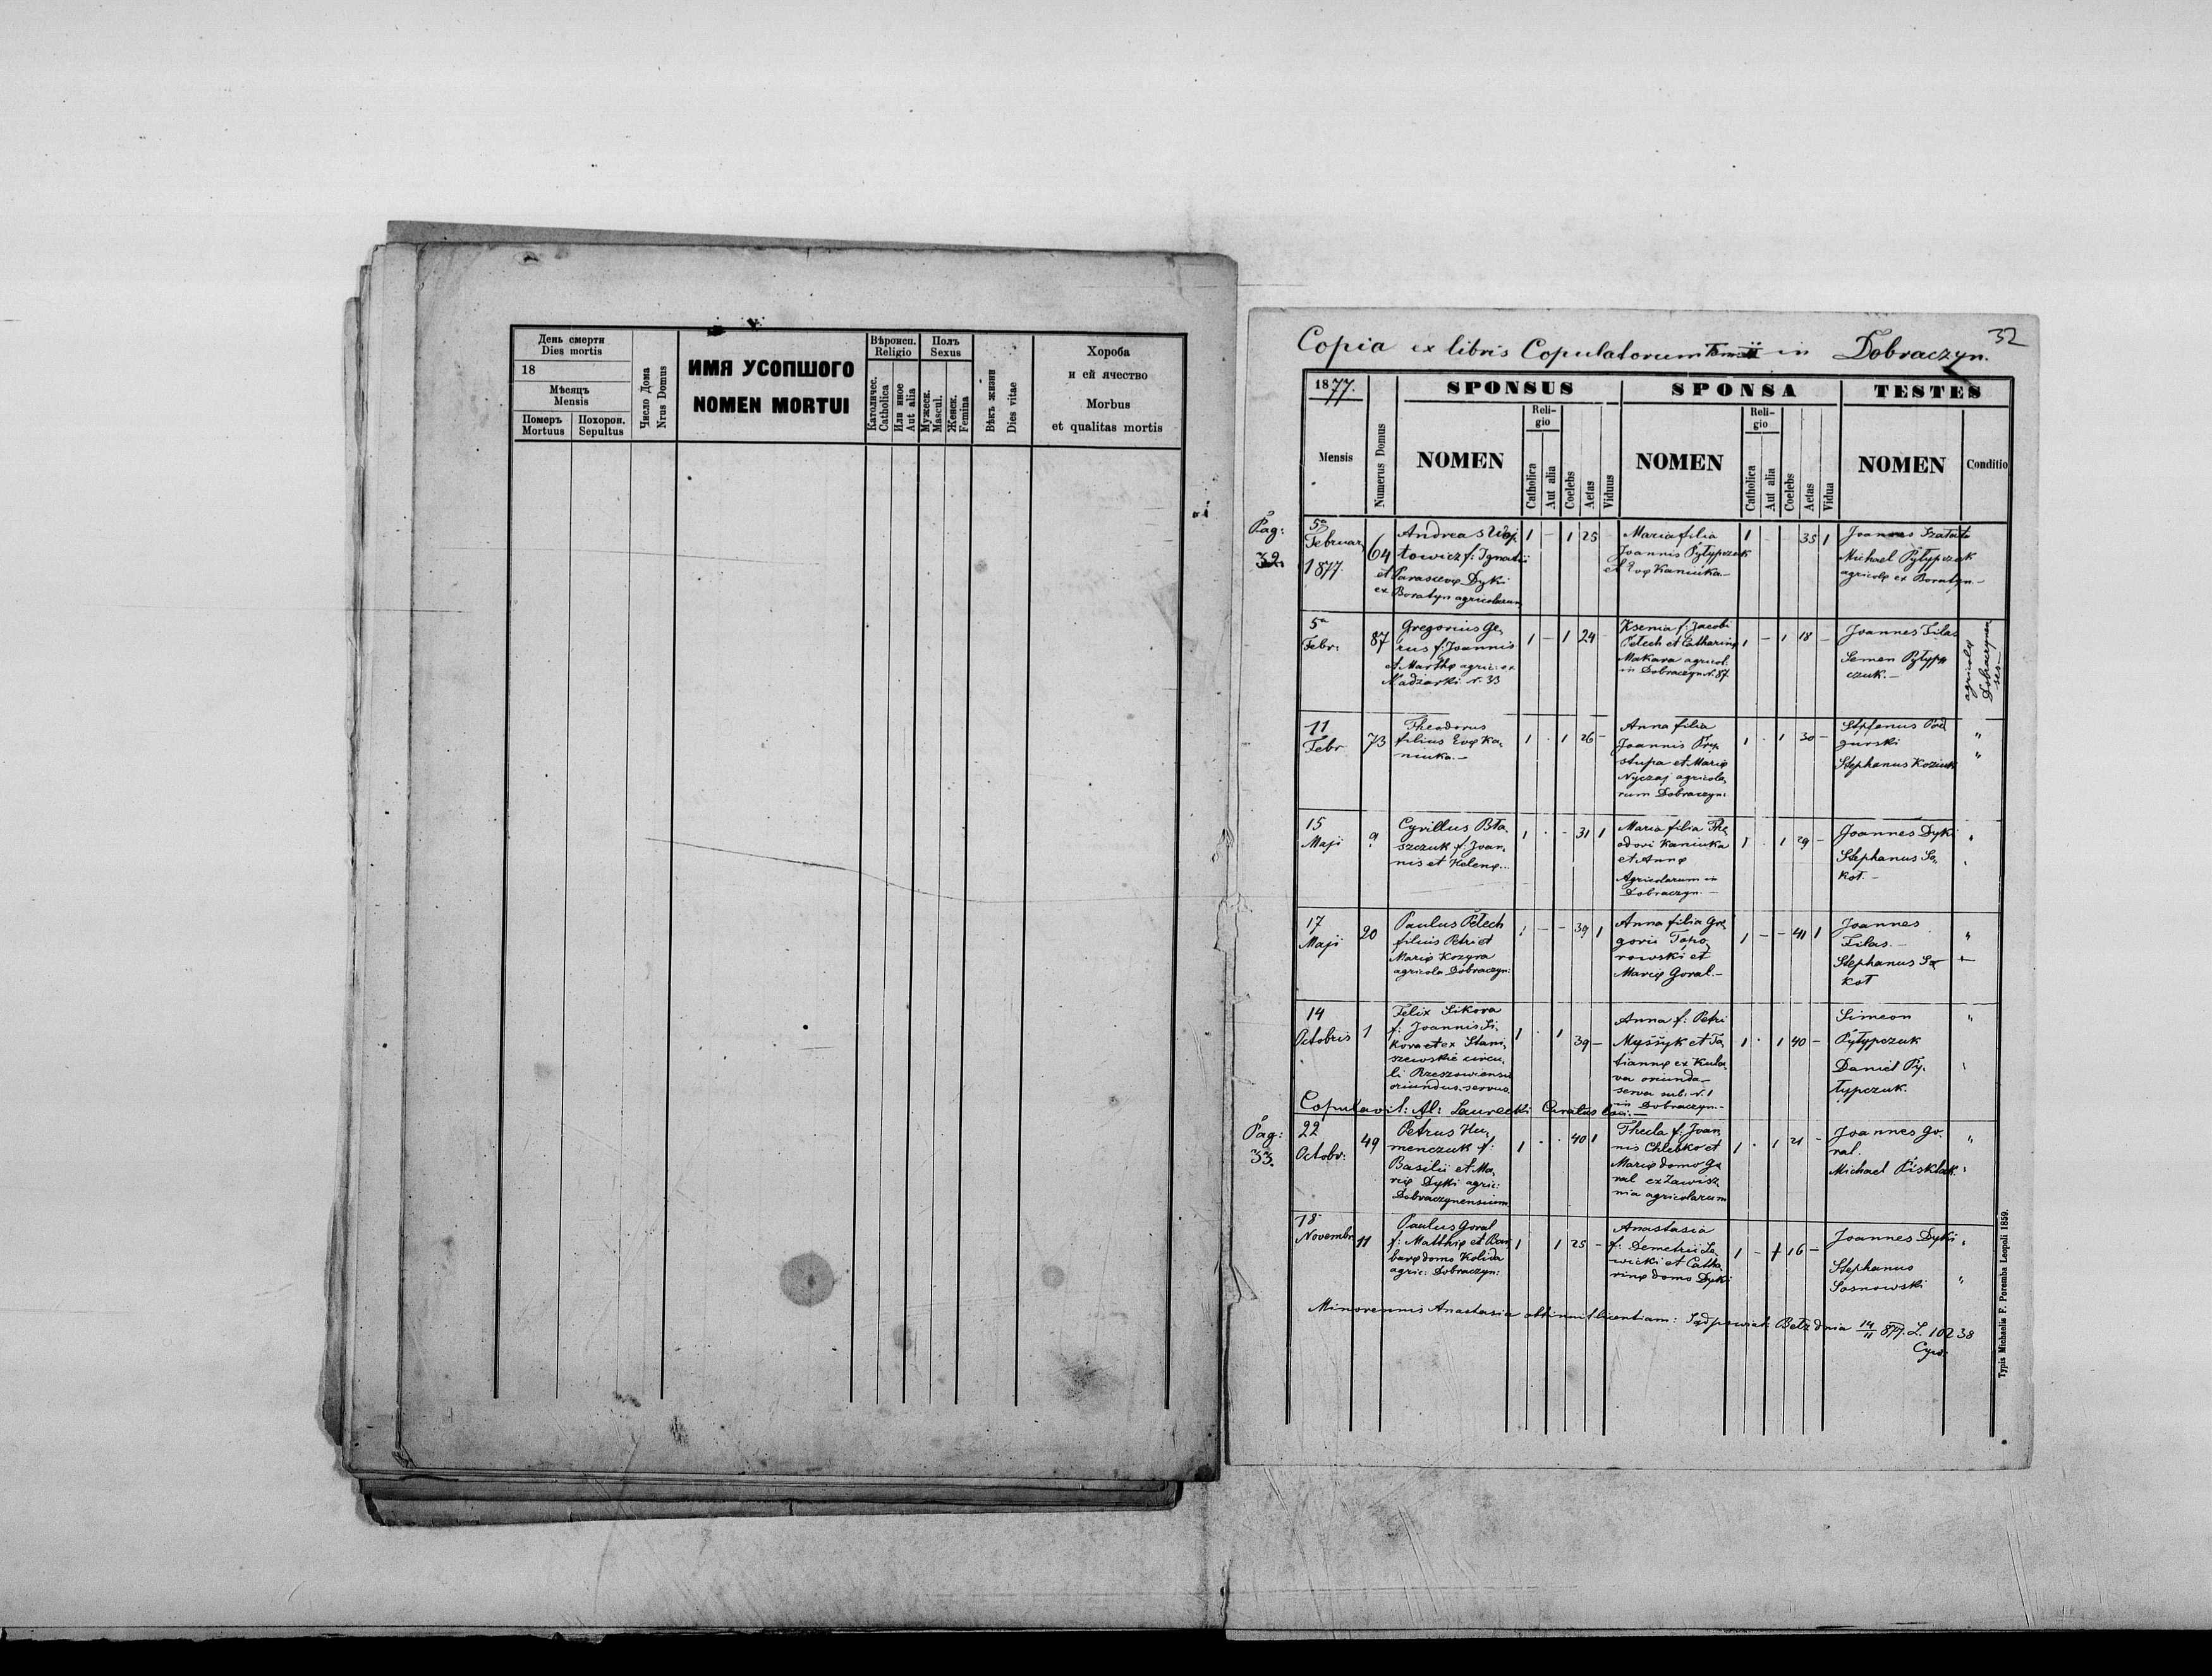 День смерти
Dies mortis
18
Мѣсяцъ
Mensis
Померъ
Mortuus
Похорон.
Sepultus
Число Дома
Nrus Domus
ИМЯ УСОПШОГО
NOMEN MORTUI
Вѣроисп.
Religio
Католичес.
Catholica
Или иное
Aut alia
Полъ
Sexus
Мужеск.
Mascul.
Женск.
Femina
Вѣкъ жизни
Dies vitae
Хороба
и ей ячество
Morbus
et qualitas mortis
32
Copia ex libris Copulatorum Tom II in Dobraczyn.
1877.
SPONSUS
SPONSA
TESTES
Mensis
Numerus Domus
NOMEN
Reli-
gio
Catholica
Aut alia
Coelebs
Aetas
Viduus
NOMEN
Reli-
gio
Catholica
Aut alia
Coelebs
Aetas
Vidua
NOMEN
Conditio
Pag:
32.
5a
Februar
1877.
64
Andreas Woj
towicz f: Ignatii
et Parascevę Dyki
ex Boratyn agricolarum
1 - 1 25
Maria filia
Joannis Pyłypczuk
et Evę Kaniuka -
1 - 35 1
Joannes
Michael Pyłypczuk
agricolę ex Boratyn. -
5a
Febr:
87
Gregorius Ge,
rus f: Joannis
et Marthę agric: ex
Madziarki N. 33
1 - 1 24 -
Ksenia f: Jacobi
Pełech et Catharinę
Makara agricol.
in Dobraczyn N. 87.
1 - 1 18 -
Joannes Filas
Semen Pyłyp
czuk. -
agricolę
Dobraczynen
ses -
11
Febr
73
Theodorus
filius Evę Ka,
niuka. -
1 . 1 26 -
Anna filia
Joannis Pry,
stupa et Marię
Nyczaj agricola,
rum Dobraczyn:
1 . 1 30 -
Stephanus Pod
gurski
Stephanus Koziuk
"
"
15
Maji
9
Cyrillus Bła,
szczuk f: Joan,
nis et Helenę..
1 . - 31 1
Maria filia The,
odori Kaniuka
et Annę
Agricolarum in
Dobraczyn. -
1 . 1 29 -
Joannes Dyki
Stephanus So,
koł. -
"
17
Maji
20
Paulus Pełech
filius Petri et
Marię Kozyra
agricola Dobraczyn:
1 - - 39 1
Anna filia Gre,
gorii Topo,
rowski et
Marię Goral. -
1 - - 41 1
Joannes
Filas. -
Stephanus So
koł
"
14
Octobris
1
Felix Sikora
f: Joannis Si,
kora et ex Stani,
szewskie circu,
li Rzeszowiensis
oriundus. servus.
1 . 1 39 -
Anna f: Petri
Myššyk et Ta,
tiannę ex Kula,
va oriunda
serva sub. N. 1
in Dobraczyn. -
1 . 1 40 -
Simeon
Pyłypczuk
Daniel Py,
łypczuk.
"
Copulavit: Al: Laurecki Curatus loci. -
Pag:
33.
22
Octobr:
49
Petrus Hu,
menczuk f:
Basilii et Ma,
rię Dyki agric:
Dobraczynensium
1 . . 40 1
Thecla f: Joan
nis Chlebko et
Marię domo Go
ral ex Zawisz,
nia agricolarum
1 . 1 21 -
Joannes Go,
ral.
Michael Pisklak.
"
18
Novembr
11
Paulus Goral
f: Matthię et Bar,
barę domo Kolida
agric: Dobraczyn:
1 1 25 -
Anastasia
f: Demetrii Le,
wicki et Catha,
rinę domo Dyki
1 - 1 16 -
Joannes Dyki
Stephanus
Sosnowski
"
Minorennis Anastasia obtinuit licentiam: Sąd powiat: Bełz dnia 14/11 877. L. 10238
Cyw:
Typis Michaelis F. Poremba Leopoli 1859.